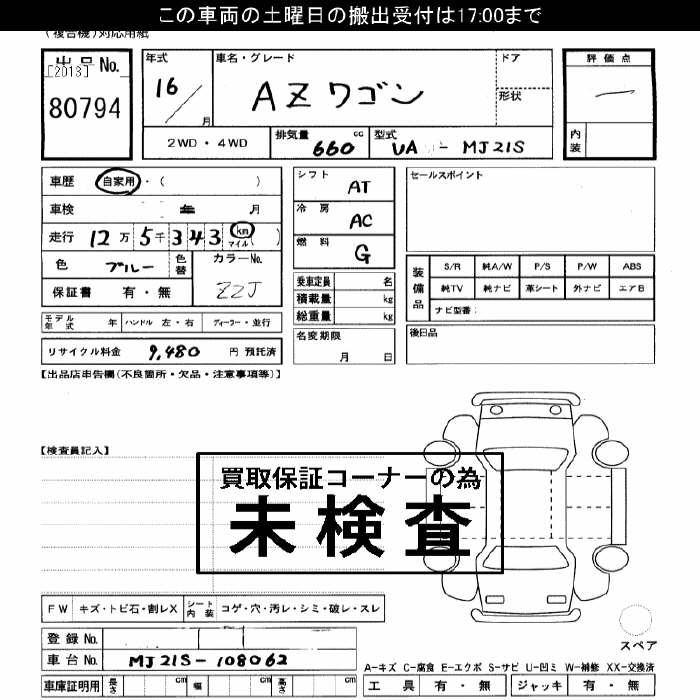 この車両の土曜日の搬出受付は17:00まで
(複合機)対応用紙
出品No.
[2013]
80794
年式
16 / 月
車名・グレード
AZワゴン
ドア
形状
評価点
内装
2WD・4WD
排気量 660 cc
型式 UA - MJ21S
車歴 自家用・( )
車検 年 月
走行 12万5千343 km マイル ( )
色 ブルー 色替
カラーNo. ZZJ
保証書 有・無
モデル年式 年 ハンドル 左・右 ディーラー・並行
リサイクル料金 9,480 円 預託済
シフト AT
冷房 AC
燃料 G
乗車定員 名
積載量 kg
総重量 kg
名変期限
月 日
セールスポイント
装備品
S/R 純A/W P/S P/W ABS
純TV 純ナビ 革シート 外ナビ エアB
ナビ型番:
後日品
【出品店申告欄(不良箇所・欠品・注意事項等)】
【検査員記入】
買取保証コーナーの為
未検査
FW キズ・トビ石・割レX シート内装 コゲ・穴・汚レ・シミ・破レ・スレ
登録No.
車台No. MJ21S-108062
車庫証明用 長さ cm 幅 cm 高さ cm
スペア
A-キズ C-腐食 E-エクボ S-サビ U-凹ミ W-補修 XX-交換済
工具 有・無 ジャッキ 有・無